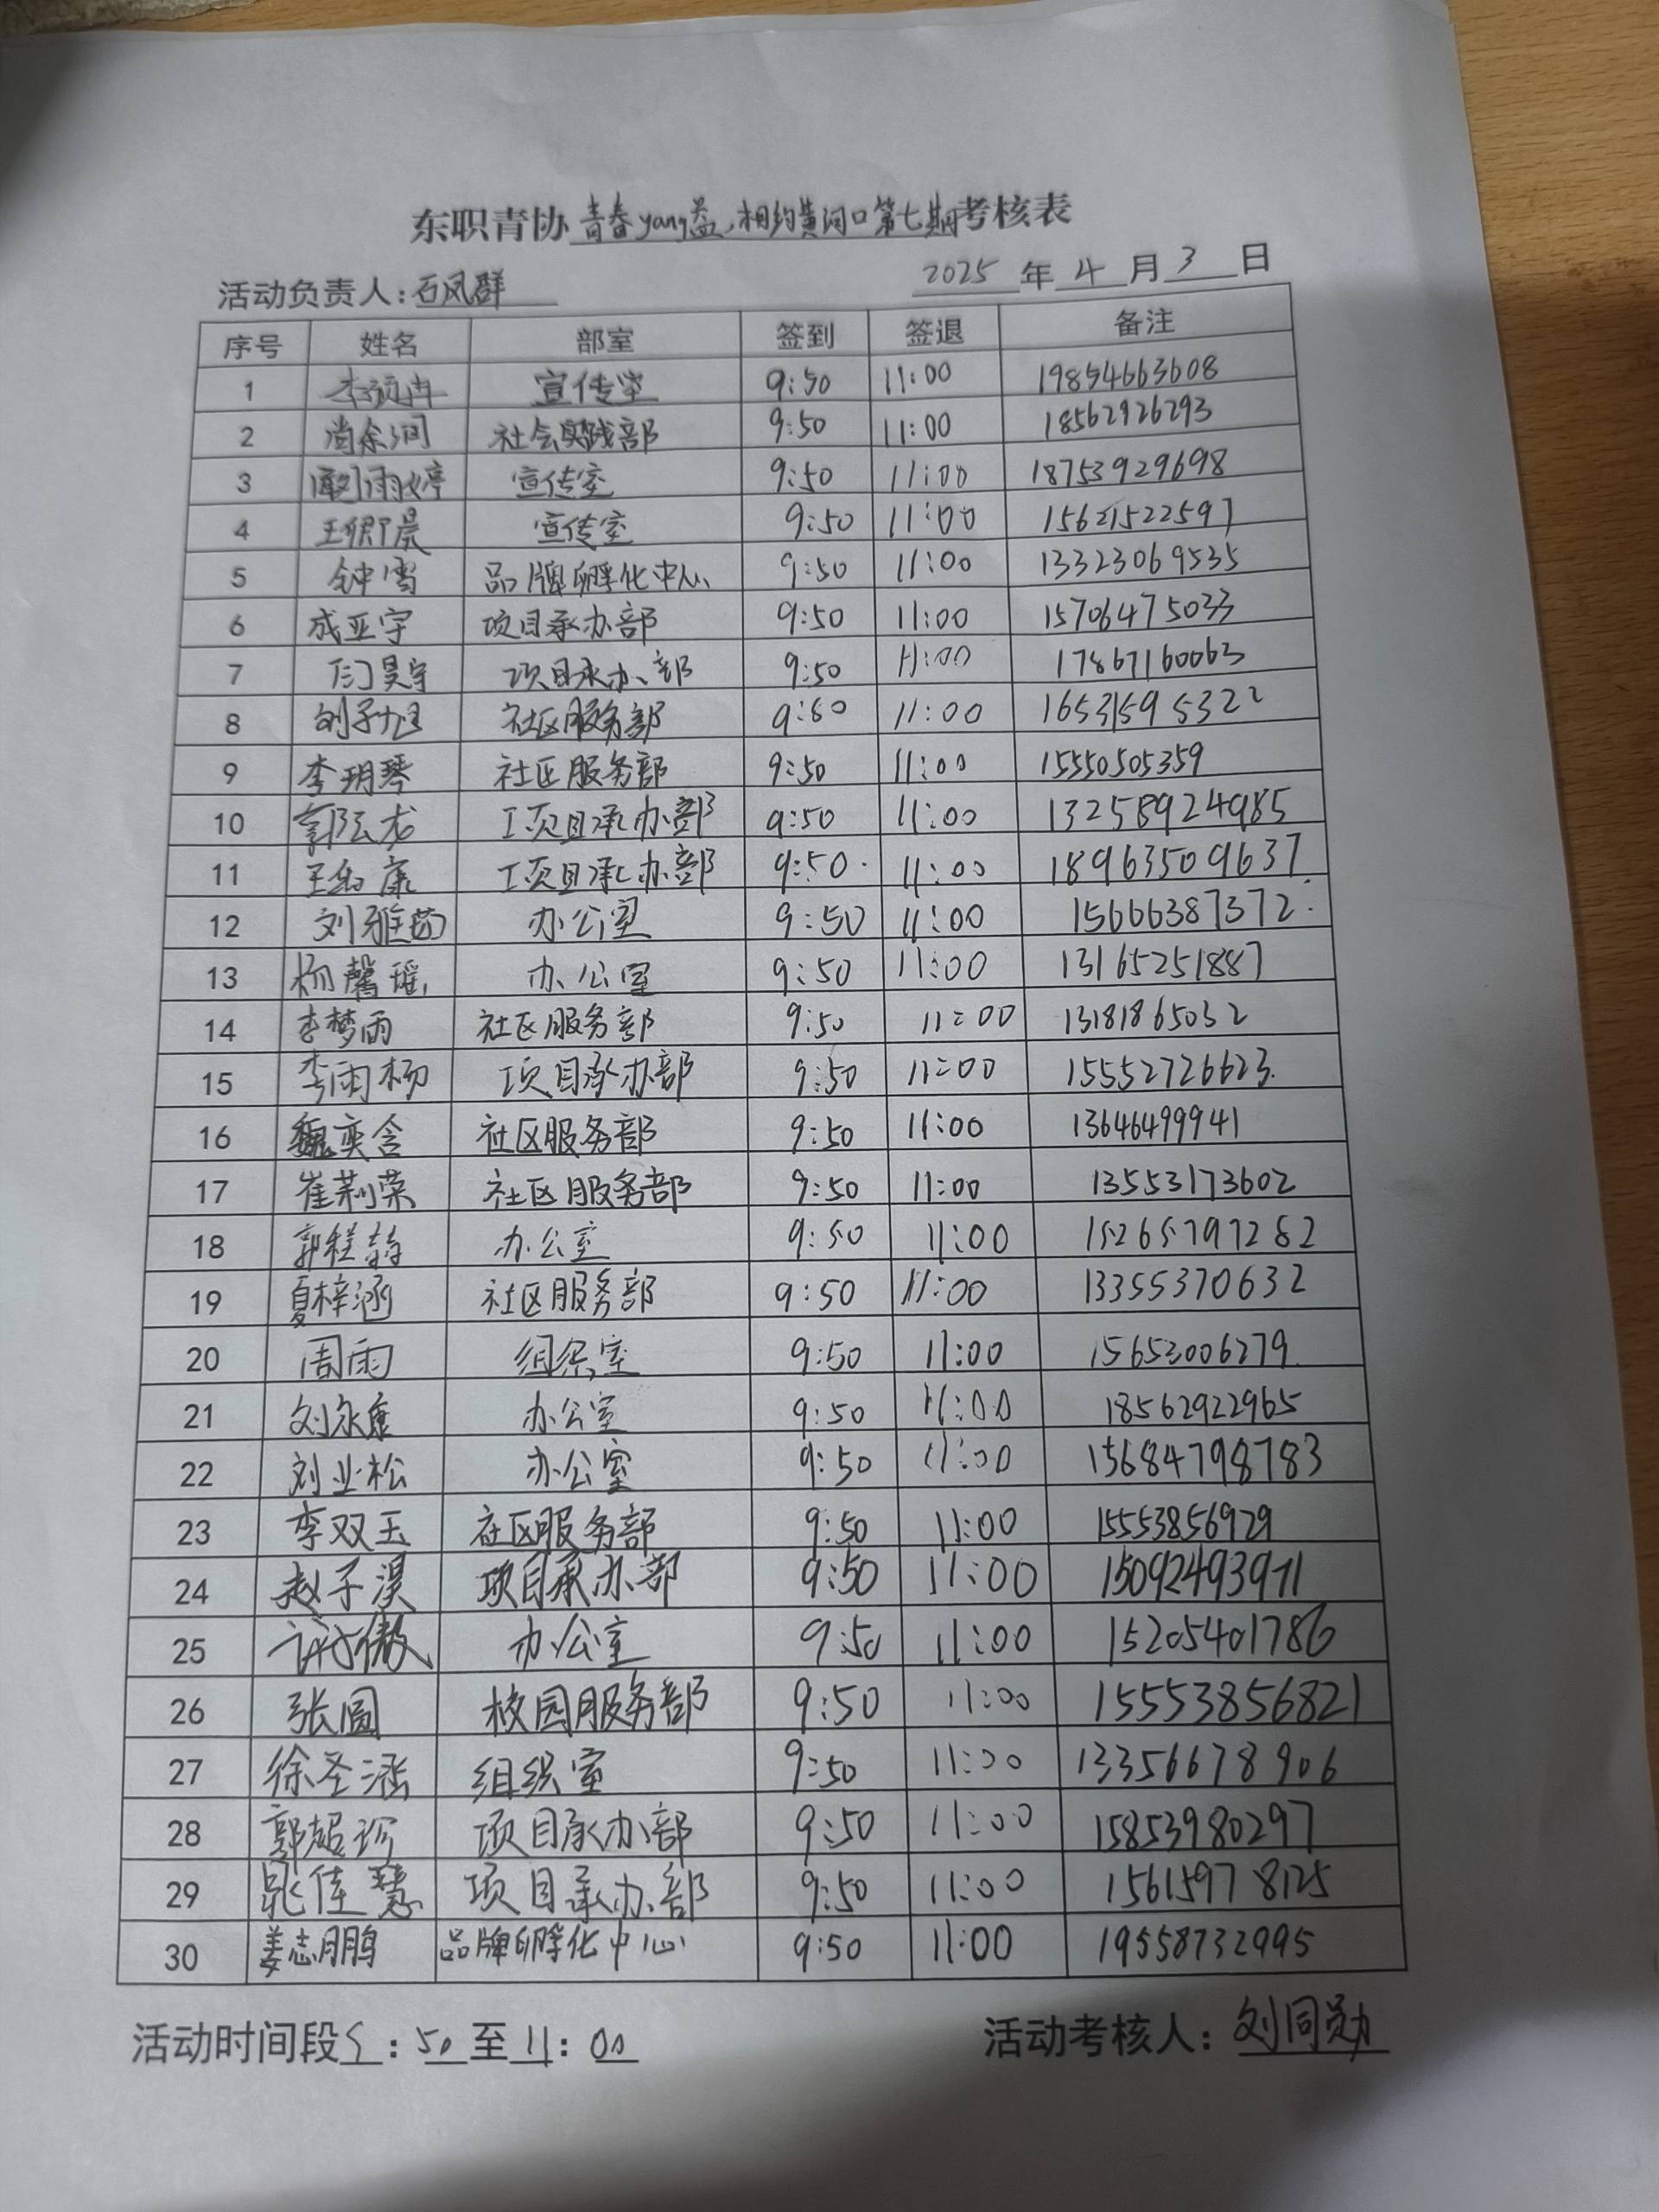 东职青协青春yang益,相约黄河口第七期考核表
活动负责人:石凤群 2025年4月3日
序号 姓名 部室 签到 签退 备注
1 宣传室 9:50 11:00 19854663608
2 尚余润 社会实践部 9:50 11:00 18562926293
3 雨婷 宣传室 9:50 11:00 18753929698
4 宣传室 9:50 11:00 15621522597
5 钟雪 品牌孵化中心 9:50 11:00 13323069535
6 成亚宇 项目承办部 9:50 11:00 15706475033
7 闫昊宇 项目承办部 9:50 11:00 17867160063
8 刘子旭 社区服务部 9:50 11:00 16531595322
9 李玥琴 社区服务部 9:50 11:00 15550505359
10 项目承办部 9:50 11:00 13258924985
11 项目承办部 9:50 11:00 18963509637
12 刘雅茹 办公室 9:50 11:00 15666387372
13 杨馨瑶 办公室 9:50 11:00 13165251887
14 李梦雨 社区服务部 9:50 11:00 13181865032
15 李雨杨 项目承办部 9:50 11:00 15552726623
16 魏奕含 社区服务部 9:50 11:00 13646499941
17 崔莉荣 社区服务部 9:50 11:00 13553173602
18 办公室 9:50 11:00 15265797282
19 夏梓涵 社区服务部 9:50 11:00 13355370632
20 周雨 组织室 9:50 11:00 15653006279
21 刘永康 办公室 9:50 11:00 18562922965
22 刘业松 办公室 9:50 11:00 156847798783
23 李双玉 社区服务部 9:50 11:00 15553856929
24 赵子淏 项目承办部 9:50 11:00 15092493971
25 许傲 办公室 9:50 11:00 15205401786
26 张圆 校园服务部 9:50 11:00 15553856821
27 徐圣涵 组织室 9:50 11:00 13356678906
28 郭超 项目承办部 9:50 11:00 15853980297
29 晁佳慧 项目承办部 9:50 11:00 15615978125
30 姜志鹏 品牌孵化中心 9:50 11:00 19558732995
活动时间段:50至11:00 活动考核人:刘同勋